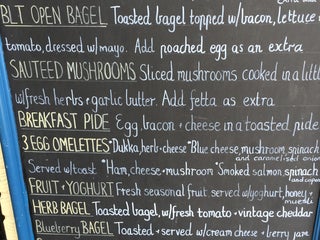 BLT OPEN BAGEL Toasted bagel topped w/bacon, lettuce
tomato, dressed w/mayo. Add poached egg as an extra
SAUTEED MUSHROOMS Sliced mushrooms cooked in a littl
w/fresh herbs + garlic butter. Add fetta as extra
BREAKFAST PIDE Egg, bacon + cheese in a toasted pide
3 EGG OMELETTES * Dukka, herb + cheese * Blue cheese, mushroom, spinach
and caramelised onion
Served w/toast * Ham, cheese + mushroom * Smoked salmon, spinach
FRUIT + YOGHURT Fresh seasonal fruit served w/yoghurt, honey +
muesli
HERB BAGEL Toasted bagel, w/fresh tomato + vintage cheddar
Blueberry BAGEL Toasted + served w/cream cheese + berry jam